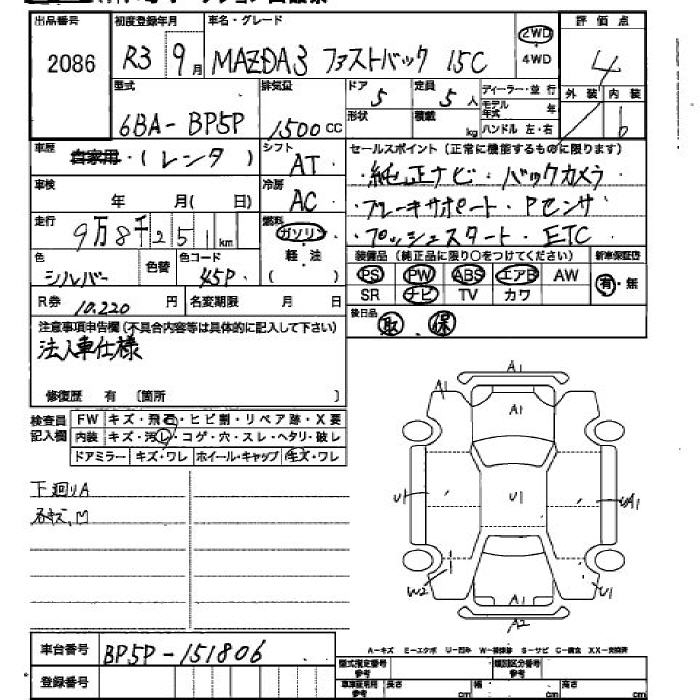 出品番号 初度登録年月 車名・グレード 評価点
2086 R3 9月 MAZDA3 ファストバック 15C 2WD 4
4WD
型式 排気量 ドア 定員 ディーラー・並行 外装 内装
6BA-BP5P 1,500CC 5 5人 モデル年式 年 6
形状 積載 kg ハンドル 左・右
車歴 自家用・(レンタ) シフト AT セールスポイント(正常に機能するものに限ります)
・純正ナビ・バックカメラ
車検 年 月( 日) 冷房 AC ・ブレーキサポート・Pセンサ
走行 9万8千251km 燃料 ガソリン ・プッシュスタート・ETC
軽・油
( )
色 シルバー 色替 色コード 45P 装備品(純正品に限り○をつけてください) 新車保証書
PS PW ABS エアB AW 有・無
SR ナビ TV カワ
R券 10,220円 名変期限 月 日
後日品 取 保
注意事項申告欄(不具合内容等は具体的に記入して下さい)
法人車仕様
修復歴 有 〔箇所 〕
検査員記入欄 FW キズ・飛石・ヒビ割・リペア跡・X要
内装 キズ・汚レ・コゲ・穴・スレ・ヘタリ・破レ
ドアミラー キズ・ワレ ホイール・キャップ キズ・ワレ
A1
A1
下廻りA
U1 U1 UA1
W2 A1 U1
A2
A-キズ E-エクボ U-凹み W-補修跡 S-サビ C-腐食 XX-交換済
車台番号 BP5P-151806
登録番号
型式指定番号 参考 類別区分番号 参考
長さ cm 幅 cm 高さ cm